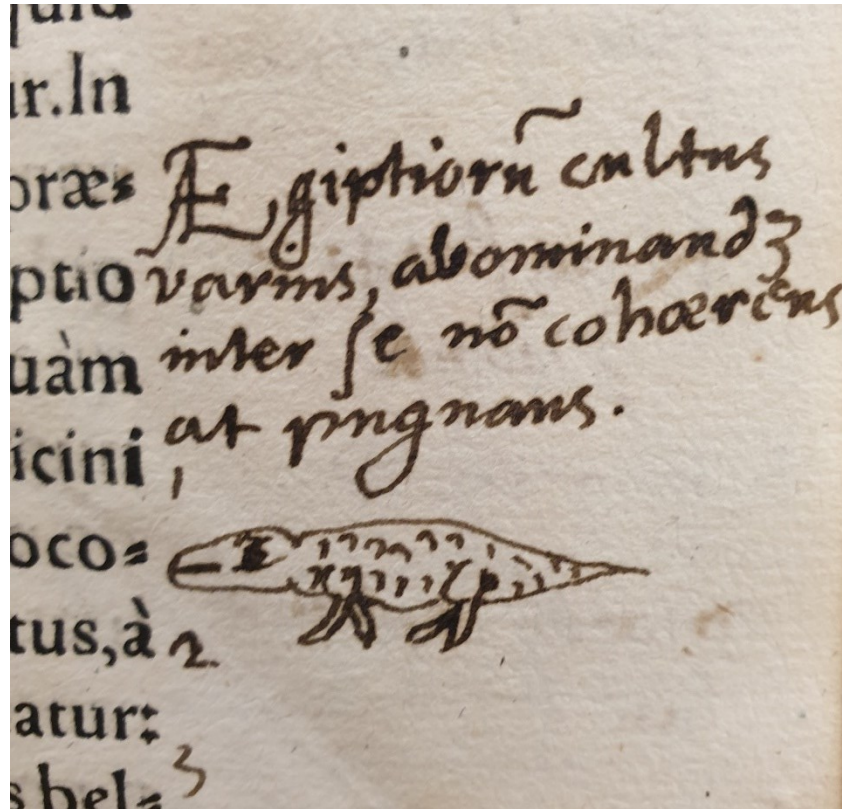 r.In
oræ=
ptio
uàm
icini
oco=
tus,à
atur:
s bel=
Ægiptiorũ cultus
varius, abominandꝫ
inter ſe nõ cohœrens
at pugnans.
1
2
3